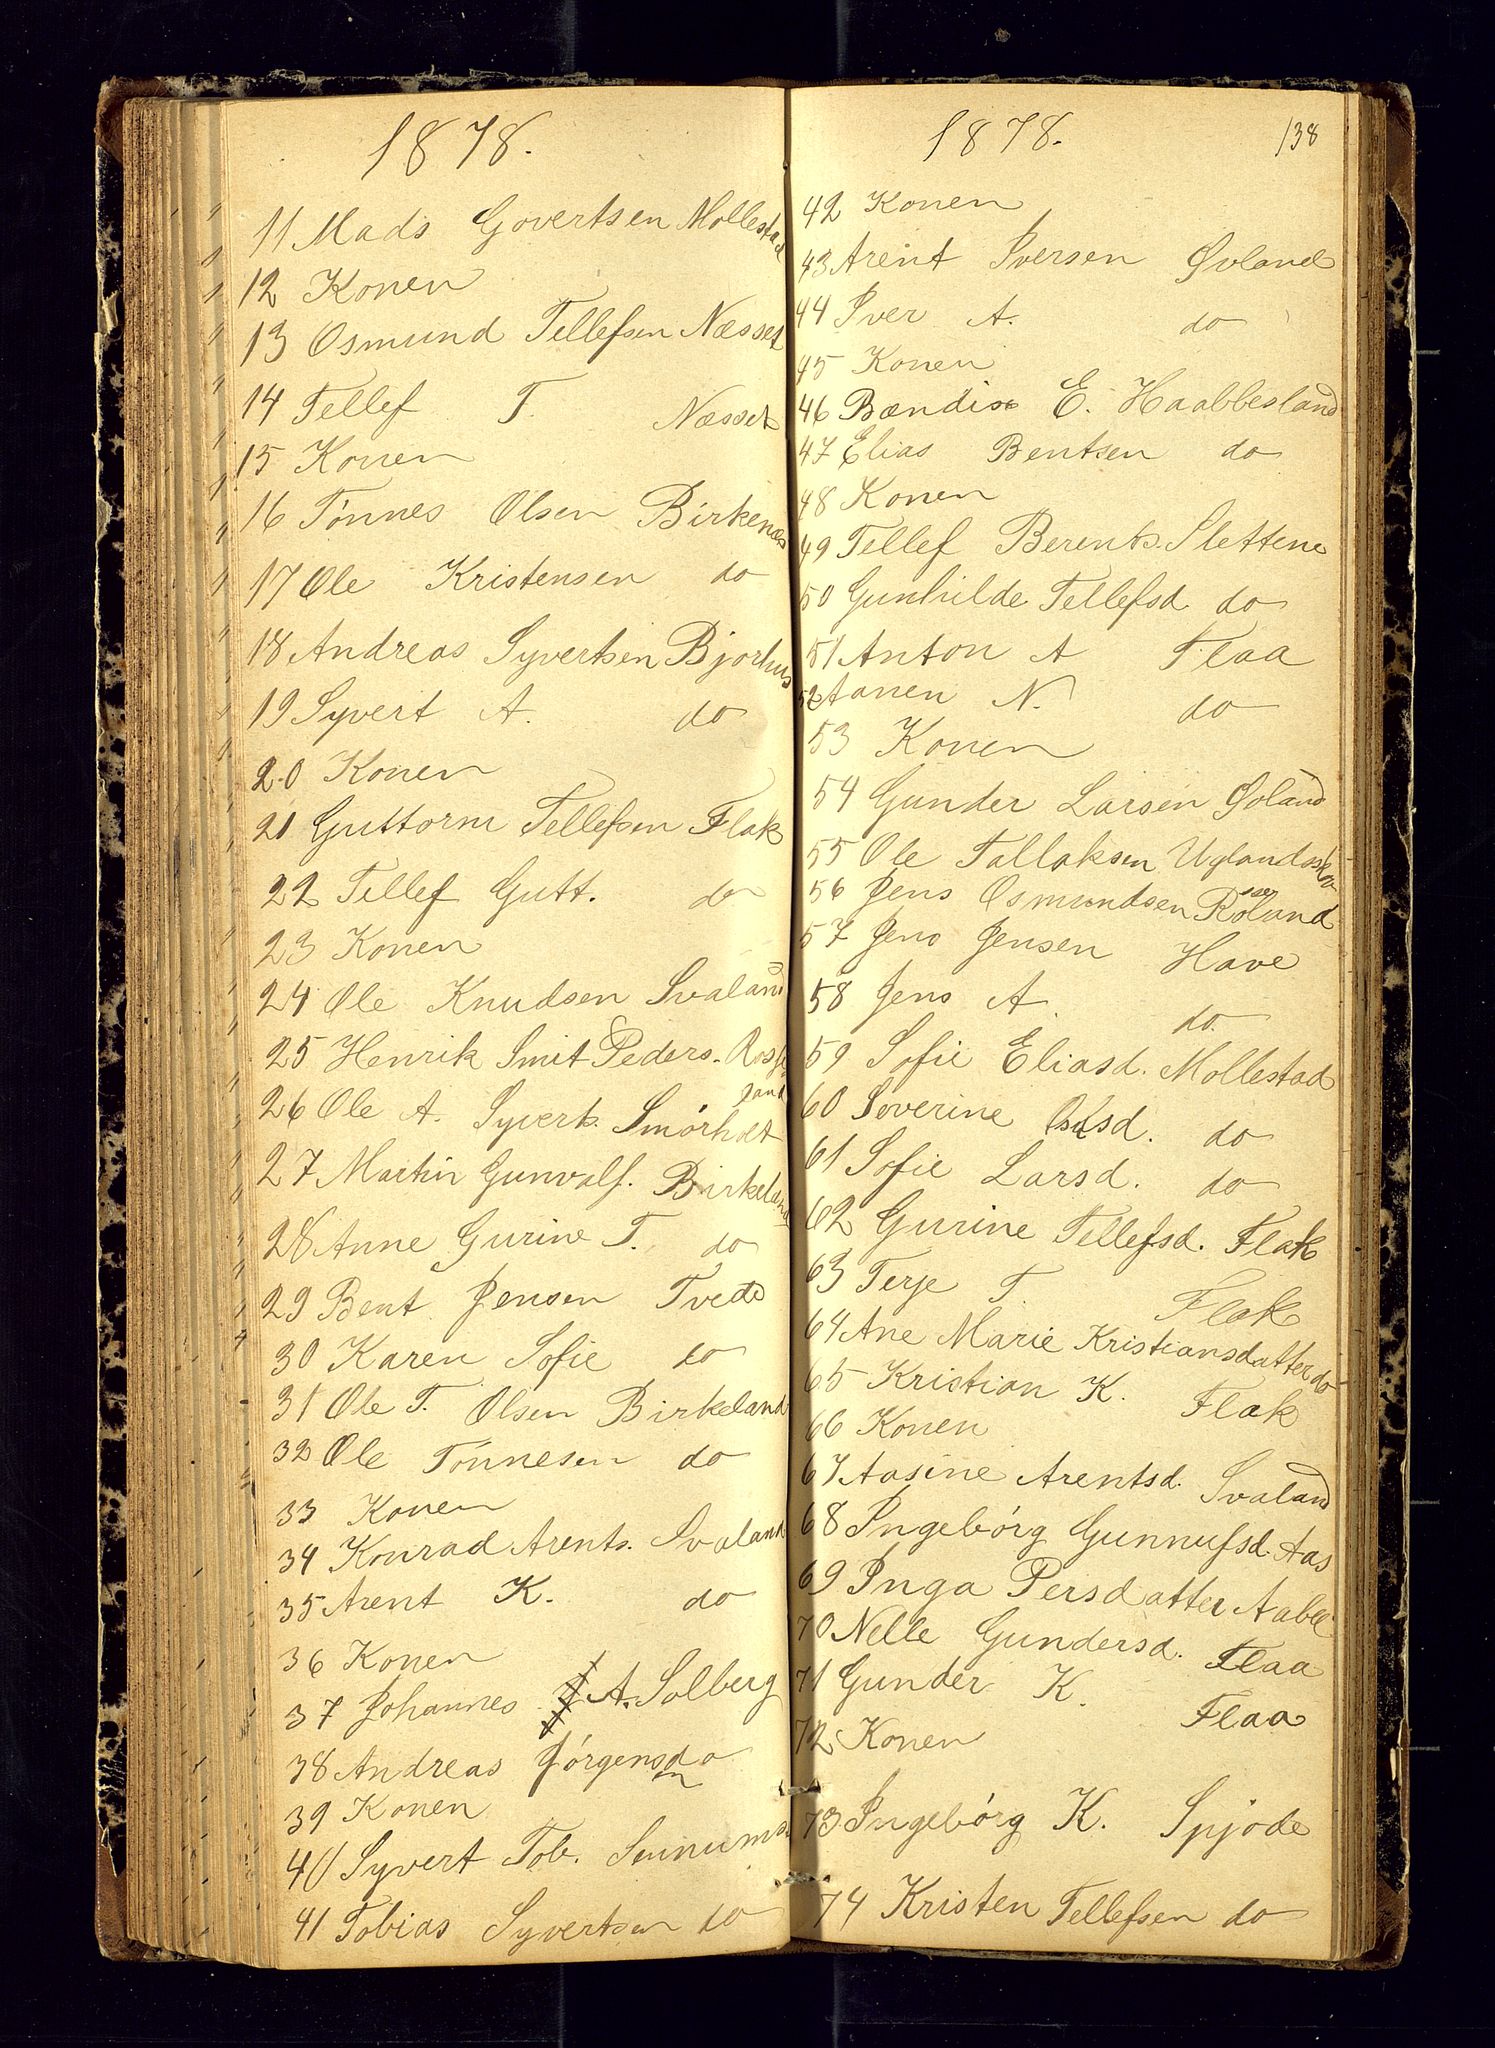 1878.
11 Mads Govertsen Mollestad
12 Konen
13 Osmund Tellefsen Næsset
14 Tellef T. Næsset
15 Konen
16 Tønnes Olsen Birkenæs
17 Ole Kristensen do
18 Andreas Syvertsen Bjorhus
19 Syvert A. do
20 Konen
21 Guttorm Tellefsen Flak
22 Tellef Gutt. do
23 Konen
24 Ole Knudsen Svaland
25 Henrik Smit Peders. Rosseland
26 Ole A. Syverts. Smørholt
27 Martin Gunvalf. Birkeland
28 Anne Gurine T. do
29 Bent Jensen Tvede
30 Karen Sofie do
31 Ole T. Olsen Birkeland
32 Ole Tønnesen do
33 Konen
34 Konrad Arents. Svaland
35 Arent K. do
36 Konen
37 Johannes A. Solberg
38 Andreas Jørgensen do
39 Konen
40 Syvert Tob. Senums
41 Tobias Syvertsen do
1878. 138
42 Konen
43 Arent Iversen Øvland
44 Iver A. do
45 Konen
46 Bændix E. Haabbesland
47 Elias Bentsen do
48 Konen
49 Tellef Berents. Slettene
50 Gunhilde Tellefsd. do
51 Anton A Flaa
52 Aanen N. do
53 Konen
54 Gunder Larsen Øvland
55 Ole Tallaksen Uglandsskov
56 Jens Osmundsen Røland
57 Jens Jensen Have
58 Jens A. do.
59 Sofie Eliasd. Mollestad
60 Severine Olsd. do
61 Sofie Larsd. do
62 Gurine Tellefsd. Flak
63 Terje T. Flak
64 Ane Marie Kristiansdatter do
65 Kristian K. Flak
66 Konen
67 Aasine Arentsd. Svaland
68 Ingebørg Gunnufsd. Aas
69 Inga Persdatter Aabel
70 Nelle Gundersd. Flaa
71 Gunder K. Flaa
72 Konen
73 Ingebørg K. Spjode
74 Kristen Tellefsen do